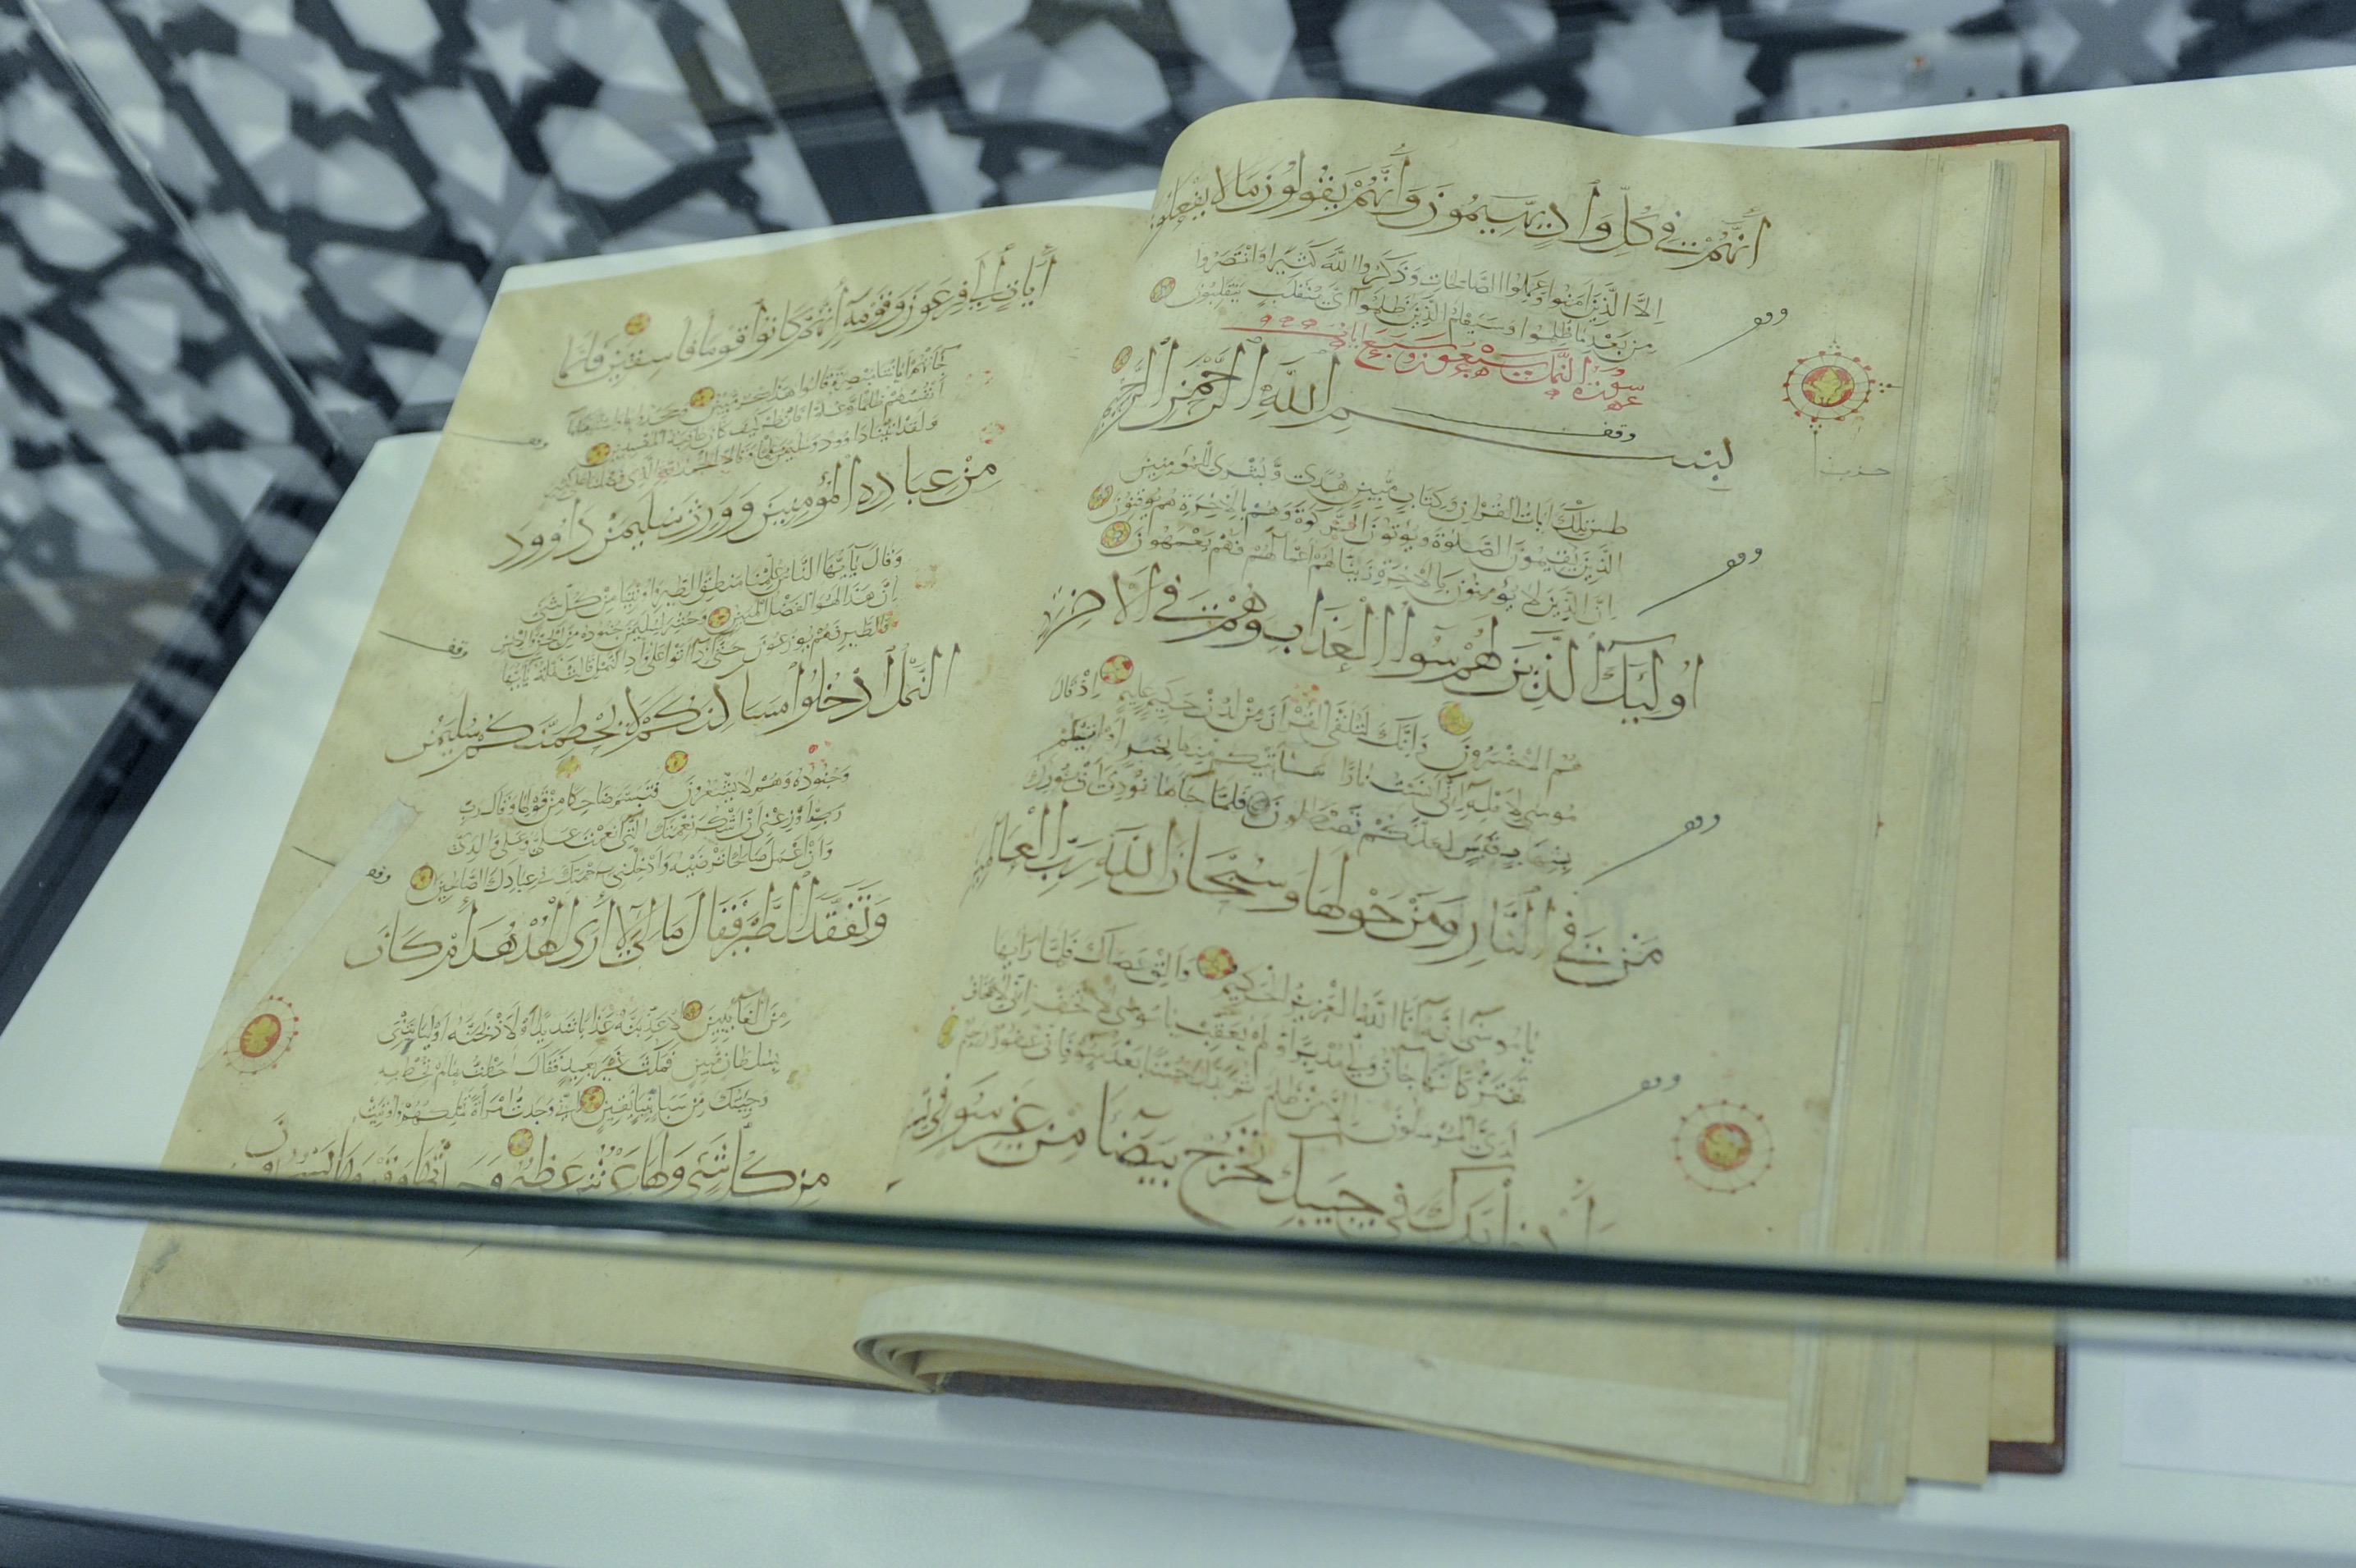 اَنَّهُمْ فِي كُلِّ وَادٍ يَهِيمُونَ وَأَنَّهُمْ يَقُولُونَ مَا لَا يَفْعَلُونَ
اِلَّا الَّذِينَ اٰمَنُوا وَعَمِلُوا الصَّالِحَاتِ وَذَكَرُوا اللّٰهَ كَثِيرًا وَانْتَصَرُوا
مِنْ بَعْدِ مَا ظُلِمُوا وَسَيَعْلَمُ الَّذِينَ ظَلَمُوا اَيَّ مُنْقَلَبٍ يَنْقَلِبُونَ
وقف
سورة النمل
بسم الله الرحمن الرحيم
وقف
حزب
طس تِلْكَ اٰيَاتُ القُرْاٰنِ وَكِتَابٍ مُّبِينٍ هُدًى وَبُشْرَى لِلْمُؤْمِنِينَ
الَّذِينَ يُقِيمُونَ الصَّلٰوةَ وَيُؤْتُونَ الزَّكٰوةَ وَهُمْ بِالْاٰخِرَةِ هُمْ يُوقِنُونَ
اِنَّ الَّذِينَ لَا يُؤْمِنُونَ بِالْاٰخِرَةِ زَيَّنَّا لَهُمْ اَعْمَالَهُمْ فَهُمْ يَعْمَهُونَ
وقف
اُولَئِكَ الَّذِينَ لَهُمْ سُوٓءُ الْعَذَابِ وَهُمْ فِي الْاٰخِرَةِ
هُمُ الْاَخْسَرُونَ وَاِنَّكَ لَتُلَقَّى الْقُرْاٰنَ مِنْ لَدُنْ حَكِيمٍ عَلِيمٍ اِذْ قَالَ
مُوسَى لِاَهْلِهِ اِنِّي اٰنَسْتُ نَارًا سَاٰتِيكُمْ مِنْهَا بِخَبَرٍ اَوْ اٰتِيكُمْ
بِشِهَابٍ قَبَسٍ لَعَلَّكُمْ تَصْطَلُونَ فَلَمَّا جَاءَهَا نُودِيَ اَنْ بُورِكَ
وقف
مَنْ فِي النَّارِ وَمَنْ حَوْلَهَا وَسُبْحَانَ اللّٰهِ رَبِّ الْعَالَمِينَ
يَا مُوسَى اِنَّهُ اَنَا اللّٰهُ الْعَزِيزُ الْحَكِيمُ وَاَلْقِ عَصَاكَ فَلَمَّا رَاٰهَا
تَهْتَزُّ كَاَنَّهَا جَانٌّ وَلَّى مُدْبِرًا وَلَمْ يُعَقِّبْ يَا مُوسَى لَا تَخَفْ اِنِّي لَا يَخَافُ
لَدَيَّ الْمُرْسَلُونَ اِلَّا مَنْ ظَلَمَ ثُمَّ بَدَّلَ حُسْنًا بَعْدَ سُوٓءٍ فَاِنِّي غَفُورٌ رَحِيمٌ
وقف
وَاَدْخِلْ يَدَكَ فِي جَيْبِكَ تَخْرُجْ بَيْضَاءَ مِنْ غَيْرِ سُوءٍ فِي
اٰيَاتٍ اِلَى فِرْعَوْنَ وَقَوْمِهِ اِنَّهُمْ كَانُوا قَوْمًا فَاسِقِينَ فَلَمَّا
جَاءَتْهُمْ اٰيَاتُنَا مُبْصِرَةً قَالُوا هَذَا سِحْرٌ مُبِينٌ وَجَحَدُوا بِهَا وَاسْتَيْقَنَتْهَا
اَنْفُسُهُمْ ظُلْمًا وَعُلُوًّا فَانْظُرْ كَيْفَ كَانَ عَاقِبَةُ الْمُفْسِدِينَ
وَلَقَدْ اٰتَيْنَا دَاوُودَ وَسُلَيْمٰنَ عِلْمًا وَقَالَا الْحَمْدُ لِلّٰهِ الَّذِي فَضَّلَنَا عَلَى كَثِيرٍ
وقف
مِنْ عِبَادِهِ الْمُؤْمِنِينَ وَوَرِثَ سُلَيْمٰنُ دَاوُودَ
وَقَالَ يَاأَيُّهَا النَّاسُ عُلِّمْنَا مَنْطِقَ الطَّيْرِ وَاُوتِينَا مِنْ كُلِّ شَيْءٍ
اِنَّ هَذَا لَهُوَ الْفَضْلُ الْمُبِينُ وَحُشِرَ لِسُلَيْمٰنَ جُنُودُهُ مِنَ الْجِنِّ وَالْاِنْسِ
وَالطَّيْرِ فَهُمْ يُوزَعُونَ حَتَّى اِذَا اَتَوْا عَلَى وَادِ النَّمْلِ قَالَتْ نَمْلَةٌ يَاأَيُّهَا
وقف
النَّمْلُ ادْخُلُوا مَسَاكِنَكُمْ لَا يَحْطِمَنَّكُمْ سُلَيْمٰنُ
وَجُنُودُهُ وَهُمْ لَا يَشْعُرُونَ فَتَبَسَّمَ ضَاحِكًا مِنْ قَوْلِهَا وَقَالَ رَبِّ
اَوْزِعْنِي اَنْ اَشْكُرَ نِعْمَتَكَ الَّتِي اَنْعَمْتَ عَلَيَّ وَعَلَى وَالِدَيَّ
وَاَنْ اَعْمَلَ صَالِحًا تَرْضَيهُ وَاَدْخِلْنِي بِرَحْمَتِكَ فِي عِبَادِكَ الصَّالِحِينَ
وقف
وَتَفَقَّدَ الطَّيْرَ فَقَالَ مَا لِيَ لَا اَرَى الْهُدْهُدَ اَمْ كَانَ
مِنَ الْغَائِبِينَ لَاُعَذِّبَنَّهُ عَذَابًا شَدِيدًا اَوْ لَاَذْبَحَنَّهُ اَوْ لَيَأْتِيَنِّي
بِسُلْطَانٍ مُبِينٍ فَمَكَثَ غَيْرَ بَعِيدٍ فَقَالَ اَحَطْتُ بِمَا لَمْ تُحِطْ بِهِ
وَجِئْتُكَ مِنْ سَبَاٍ بِنَبَاٍ يَقِينٍ اِنِّي وَجَدْتُ امْرَاَةً تَمْلِكُهُمْ وَاُوتِيَتْ
مِنْ كُلِّ شَيْءٍ وَلَهَا عَرْشٌ عَظِيمٌ